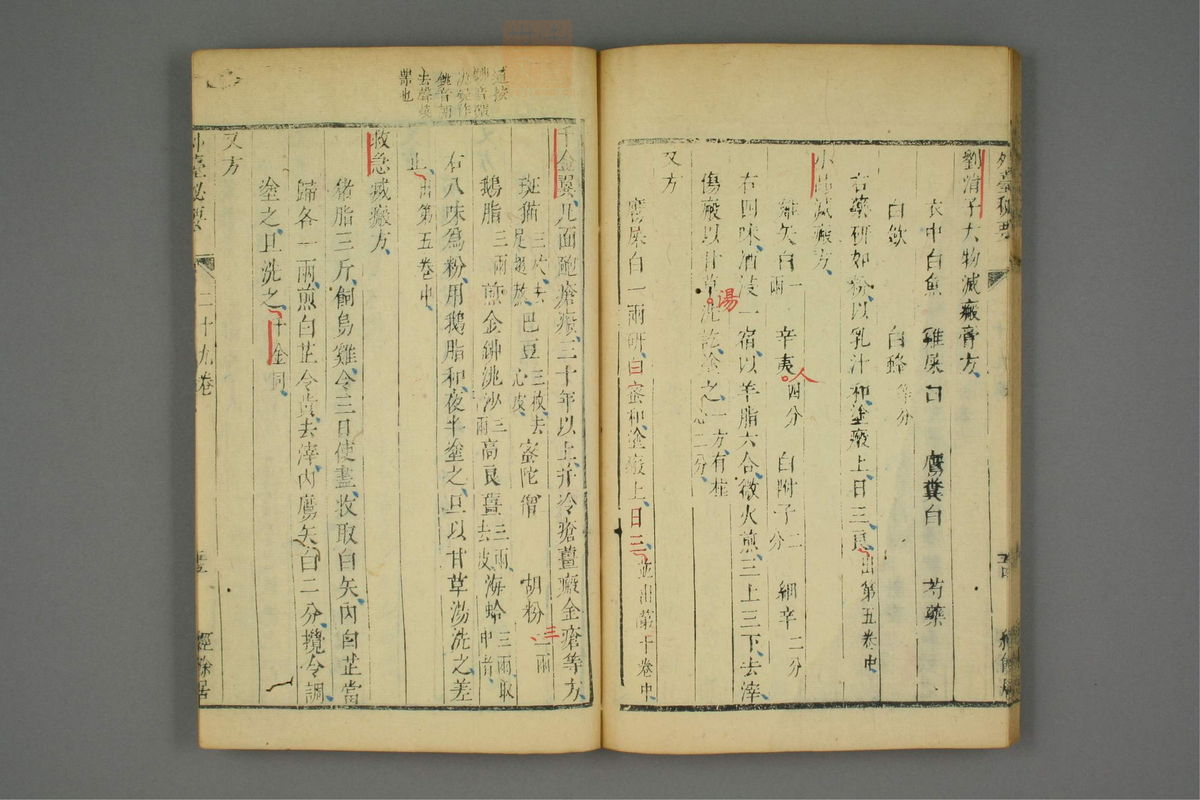 劉涓子大物滅瘢膏方
衣中白魚 雞屎白 鷹糞白 芍藥
白歛 白蜂等分
右藥研如粉以乳汁和塗瘢上日三良出第五卷中
小品滅瘢方
雞矢白一兩 辛夷四分 白附子二分 細辛二分
右四味酒浸一宿以羊脂六合微火煎三上三下去滓
傷瘢以甘草湯洗訖塗之一方有桂心二分
又方
鷹屎白一兩研白蜜和塗瘢上日三並出第十卷中
千金翼凡面皰瘡瘢三十年以上并冷瘡薑瘢金瘡等方
斑猫三枚去足翅熬 巴豆三枚去心皮 蜜陀僧 胡粉二兩
鵝脂三兩煎 金綈洮沙三兩 高良薑三兩去皮 海蛤三兩取中者
右八味爲粉用鵝脂和夜半塗之旦以甘草湯洗之差
止出第五卷中
救急滅瘢方
猪脂三斤飼烏雞令三日使盡收取白矢內白芷當
歸各一兩煎白芷令黃去滓內鷹矢白二分攪令調
塗之旦洗之千金同
又方
外臺秘要 二十九卷 經餘居